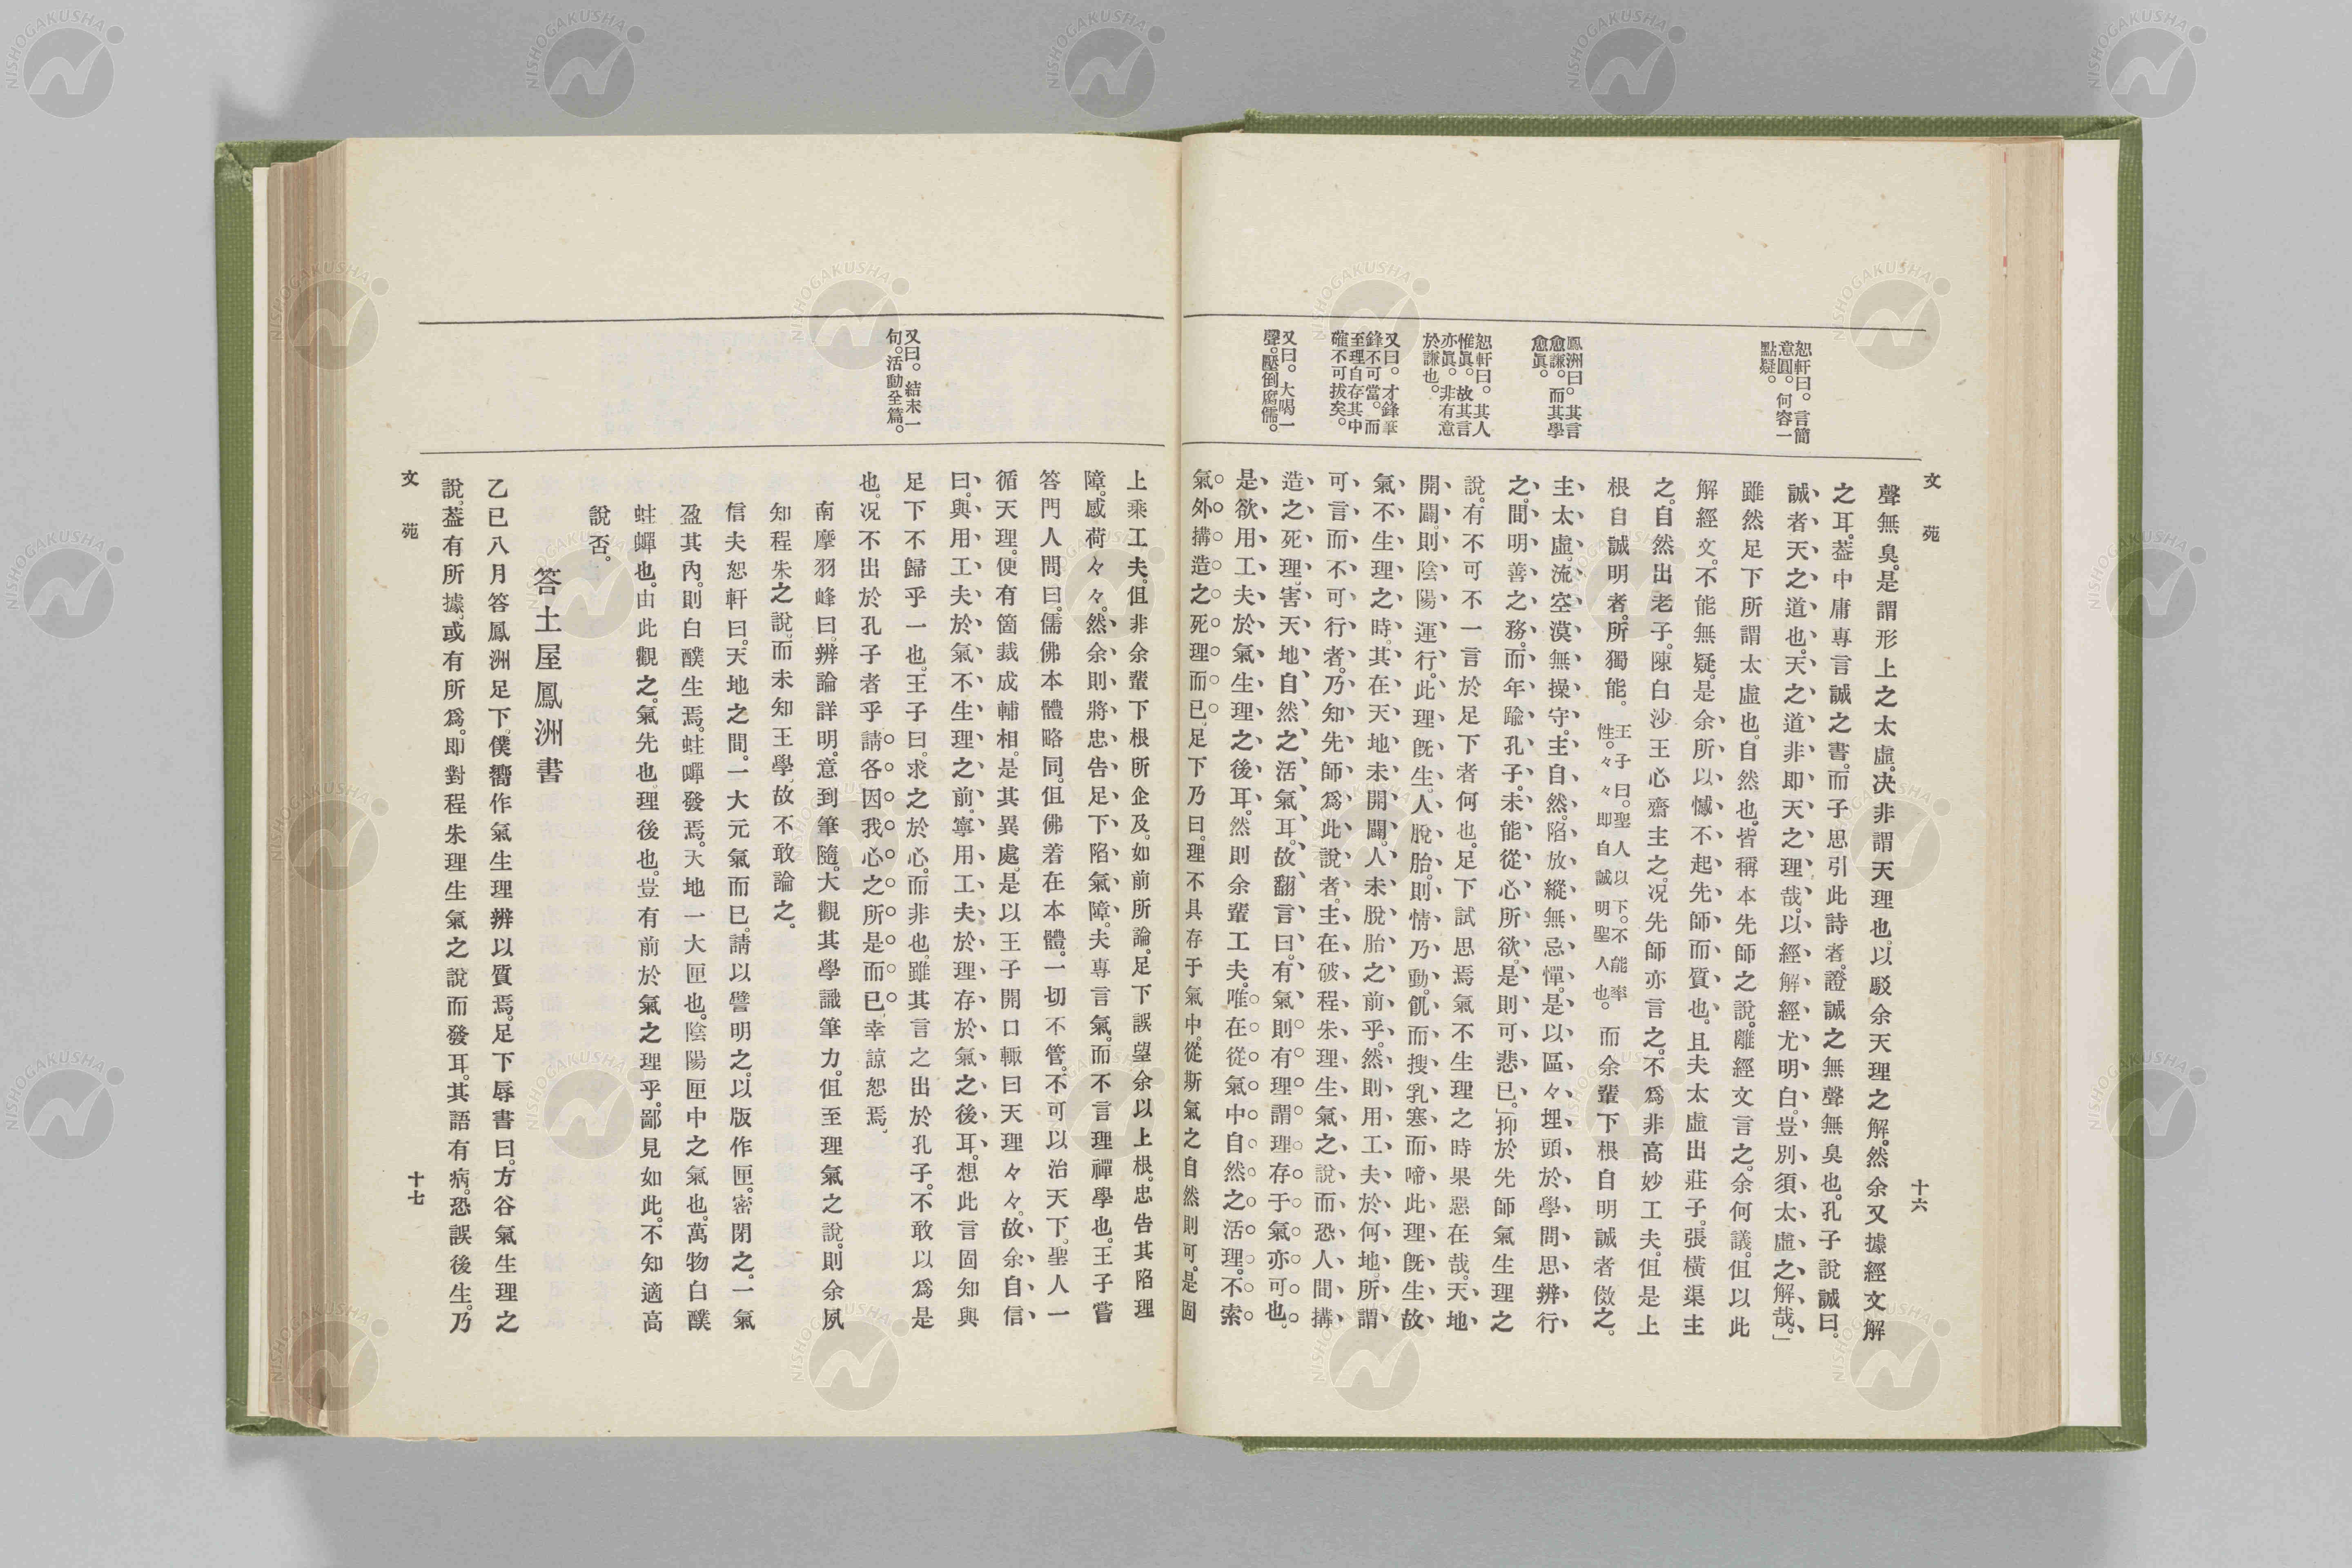 文苑
十六
恕軒曰。言簡
意圓。何容一
點疑。
鳳洲曰。其言
愈謙。而其學
愈眞。
恕軒曰。其人
惟眞。故其言
亦眞。非有意
於謙也。
又曰。才鋒筆
鋒不可當。而
至理自存其中
確不可拔矣。
又曰。大喝一
聲。壓倒腐儒。
聲無臭。是謂形上之太虛。決非謂天理也。以駁余天理之解。然余又據經文解
之耳。葢中庸專言誠之書。而子思引此詩者。證誠之無聲無臭也。孔子說誠曰。
誠者天之道也。天之道非即天之理哉。以經解經尤明白。豈別須太虛之解哉。」
雖然足下所謂太虛也。自然也。皆稱本先師之說。離經文言之。余何議。但以此
解經文。不能無疑。是余所以憾不起先師而質也。且夫太虛出莊子。張橫渠主
之。自然出老子。陳白沙王心齋主之。况先師亦言之。不爲非高妙工夫。但是上
根自誠明者。所獨能。王子曰。聖人以下。不能率性。々々即自誠明聖人也。而余輩下根自明誠者倣之。
主太虛。流空漠無操守。主自然。陷放縱無忌憚。是以區々埋頭於學問思辨行
之。間明善之務。而年踰孔子。未能從心所欲。是則可悲已。」抑於先師氣生理之
說。有不可不一言於足下者何也。足下試思焉氣不生理之時果惡在哉。天地
開闢。則陰陽運行。此理旣生。人脫胎。則情乃動。飢而搜乳。塞而啼此理旣生。故
氣不生理之時。其在天地未開闢。人未脫胎之前乎。然則用工夫於何地。所謂
可言而不可行者。乃知先師爲此說者。主在破程朱理生氣之說而恐人間搆
造之死理。害天地自然之活氣耳。故翻言曰。有氣則有理謂理存于氣亦可也。
是欲用工夫於氣生理之後耳。然則余輩工夫。唯在從氣中自然之活理。不索
氣外搆造之死理而已。足下乃曰。理不具存于氣中。從斯氣之自然則可。是固
又曰。結末一
句。活動全篇。
上乘工夫。但非余輩下根所企及。如前所論。足下誤望余以上根。忠告其陷理
障。感荷々々。然余則將忠告足下陷氣障。夫專言氣。而不言理禪學也。王子嘗
答門人問曰。儒佛本體略同。但佛若在本體。一切不管。不可以治天下。聖人一
循天理。便有箇裁成輔相。是其異處。是以王子開口輙曰天理々々。故余自信
曰。與用工夫於氣不生理之前。寧用工夫於理存於氣之後耳。想此言固知與
足下不歸乎一也。王子曰。求之於心。而非也。雖其言之出於孔子。不敢以爲是
也。况不出於孔子者乎請各因我心之所是而已。幸諒恕焉。
南摩羽峰曰。辨論詳明。意到筆隨。大觀其學識筆力。但至理氣之說。則余夙
知程朱之說。而未知王學。故不敢論之。
信夫恕軒曰。天地之間。一大元氣而已。請以譬明之。以版作匣。密閉之。一氣
盈其內。則白醭生焉。蛀蟫發焉。天地一大匣也。陰陽匣中之氣也。萬物白醭
蛀蟫也。由此觀之。氣先也。理後也。豈有前於氣之理乎。鄙見如此。不知適高
說否。
答土屋鳳洲書
乙巳八月答鳳洲足下。僕嚮作氣生理辨以質焉。足下辱書曰。方谷氣生理之
說。葢有所據。或有所爲。即對程朱理生氣之說而發耳。其語有病。恐誤後生。乃
文苑
十七